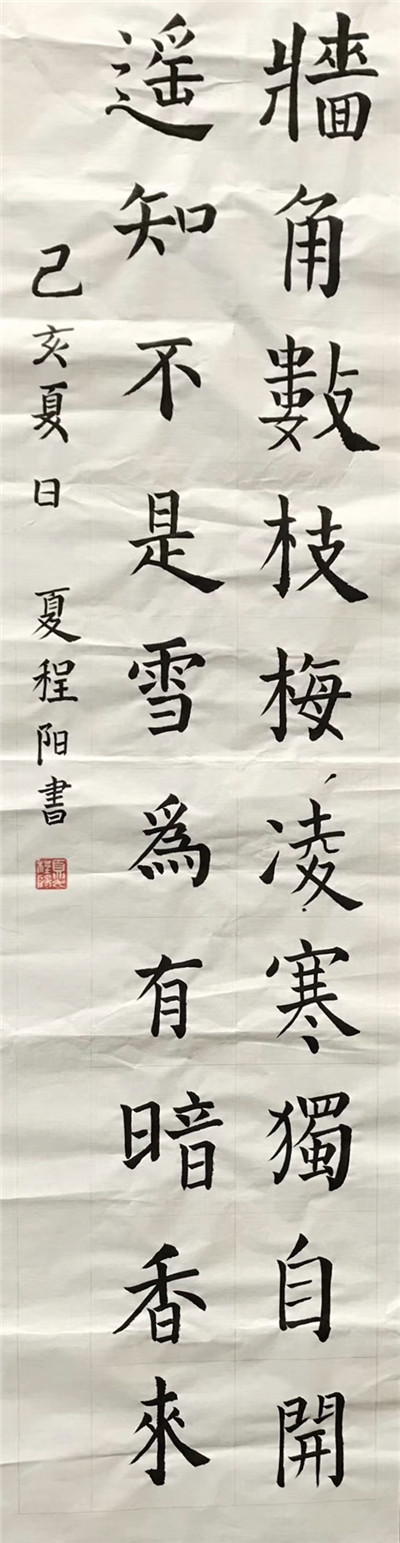 牆角數枝梅凌寒獨自開
遥知不是雪為有暗香來
己亥夏日 夏程阳書